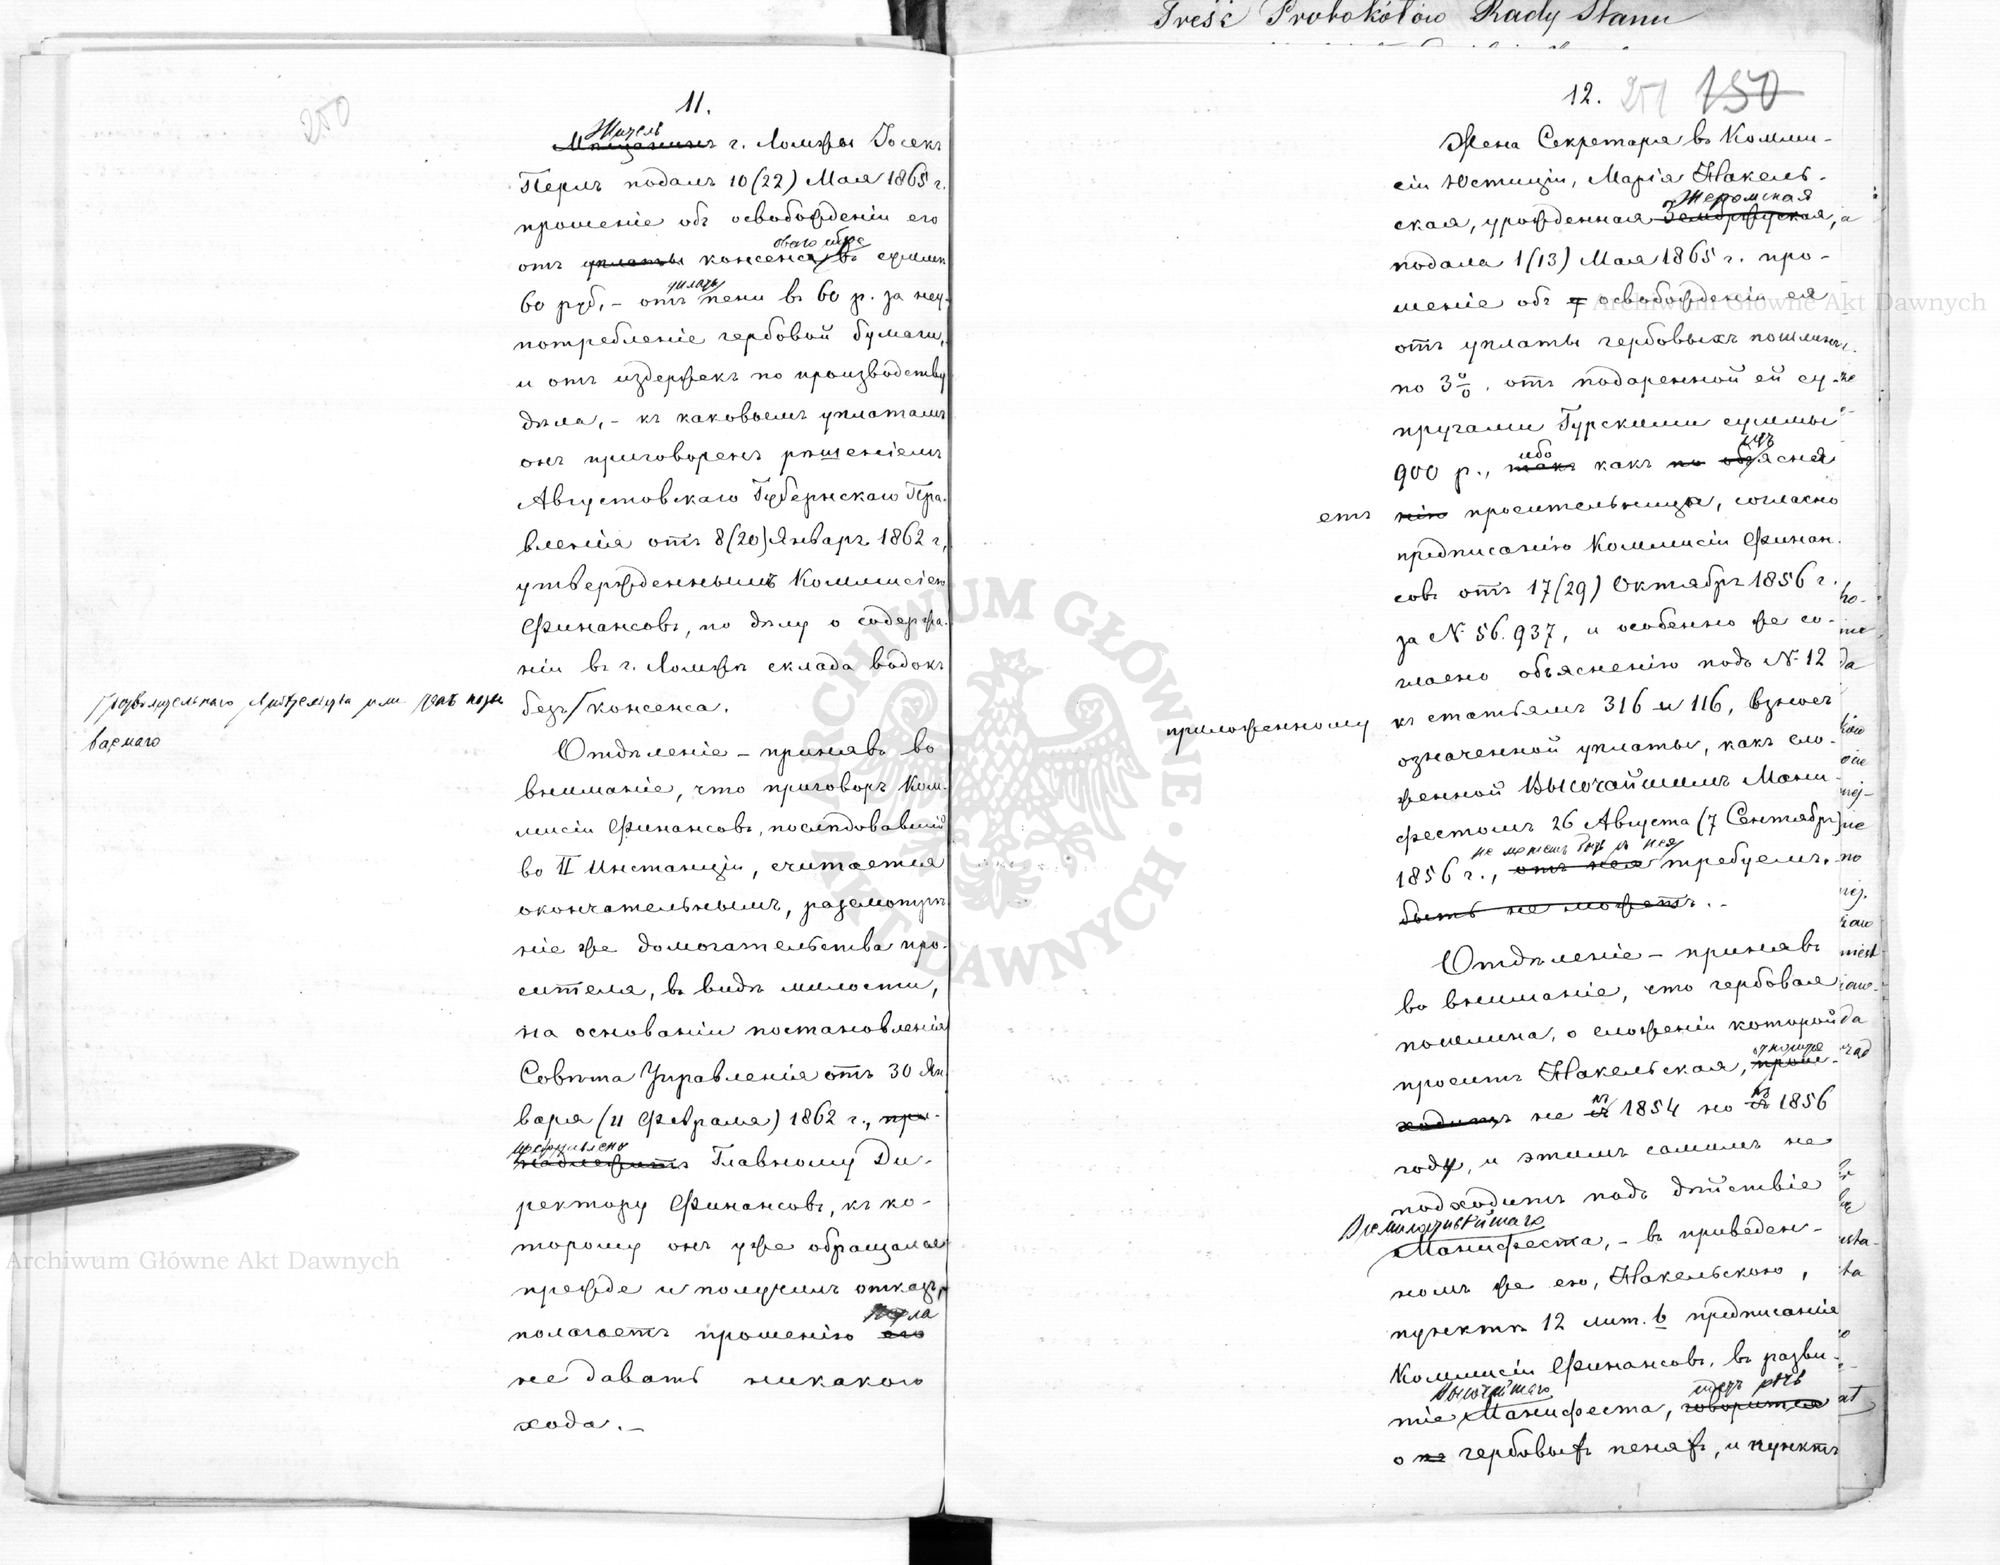 Treść Protokółów Rady Stanu
250
11.
Житель
Мѣщанинъ г. Ломжи Госекъ
Перлъ подалъ 10 (22) Мая 1865 г.
прошеніе объ освобожденіи его
отъ уплаты консенса, въ суммѣ
60 руб., – отъ пени въ 60 р. за неу-
потребленіе гербовой бумаги,
и отъ издержекъ по производству
дѣла, – къ каковымъ уплатамъ
онъ приговоренъ рѣшеніемъ
Августовскаго Губернскаго Пра-
вленія отъ 8 (20) Января 1862 г.,
утвержденнымъ Коммисіею
Финансовъ, по дѣлу о содержа-
ніи въ г. Ломжѣ склада водокъ
безъ консенса.
ваемаго
Отдѣленіе – принявъ во
вниманіе, что приговоръ Ком-
мисіи Финансовъ, послѣдовавшій
во II Инстанціи, считается
окончательнымъ, разсмотрѣ-
ніе же домогательства про-
сителя, въ видѣ милости,
на основаніи постановленія
Совѣта Управленія отъ 30 Ян-
варя (11 Февраля) 1862 г., при-
надлежитъ Главному Ди-
ректору Финансовъ, къ ко-
торому онъ уже обращался
прежде и получилъ отказъ,
Перла
полагаетъ прошенію его
не давать никакого
хода. –
12. 251 150
Жена Секретаря въ Комми-
сіи Юстиціи, Марія Накель-
Жеромская
ская, урожденная
подала 1 (13) Мая 1865 г. про-
шеніе объ освобожденіи ея
отъ уплаты гербовыхъ пошлинъ
по 3%. отъ подаренной ей су-
пругами Гурскими суммы
ибо
900 р., такъ какъ по объясне
етъ нію просительницы, согласно
предписанію Коммисіи Финан-
совъ отъ 17 (29) Октября 1856 г.
за № 56.937, и особенно же со-
гласно объясненію подъ № 12
приложенному къ статьямъ 316 и 116, взносъ
означенной уплаты, какъ сло-
женной Высочайшимъ Мани-
фестомъ 26 Августа (7 Сентября)
не можетъ быть съ нея
1856 г., отъ нея требуемъ.
быть не можетъ. –
Отдѣленіе – принявъ
во вниманіе, что гербовая
пошлина, о сложеніи которой
проситъ Накельская, проис-
ходитъ не съ 1854 но съ 1856
году, и этимъ самимъ не
подходитъ подъ дѣйствіе
Всемилостивѣйшаго
Манифеста, – въ приведен-
номъ же ею, Накельскою,
пунктѣ 12 лит. b предписанія
Коммисіи Финансовъ, въ разви-
Высочайшаго идетъ рѣчь
тіе Манифеста, говорится
о гербовыхъ пеняхъ, и пунктъ
Archiwum Główne Akt Dawnych
Archiwum Główne Akt Dawnych
ARCHIWUM GŁÓWNE AKT DAWNYCH